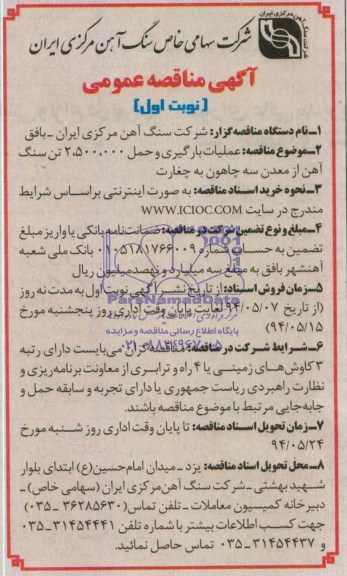 شرکت سهامی خاص سنگ آهن مرکزی ایران
آگهی مناقصه عمومی
(نوبت اول)
۱ـ نام دستگاه مناقصه‌گزار: شرکت سنگ آهن مرکزی ایران ـ بافق
۲ـ موضوع مناقصه: عملیات بارگیری و حمل ۲,۵۰۰,۰۰۰ تن سنگ
آهن از معدن سه چاهون به چغارت
۳ـ نحوه خرید اسناد مناقصه: به صورت اینترنتی براساس شرایط
مندرج در سایت WWW.ICIOC.COM
۴ـ مبلغ و نوع تضمین شرکت در مناقصه: ضمانت‌نامه بانکی یا واریز مبلغ
تضمین به حساب شماره ۰۱۰۵۱۸۱۷۶۶۰۰۹ بانک ملی شعبه
آهنشهر بافق به مبلغ سه میلیارد و نهصد میلیون ریال
۵ـ زمان فروش اسناد: از تاریخ نشر آگهی نوبت اول به مدت نه روز
(از تاریخ ۹۴/۰۵/۰۷ لغایت پایان وقت اداری روز پنجشنبه مورخ
۹۴/۰۵/۱۵)
۶ـ شرایط شرکت در مناقصه: مناقصه‌گران می‌بایست دارای رتبه
۳ کاوش‌های زمینی یا ۴ راه و ترابری از معاونت برنامه‌ریزی و
نظارت راهبردی ریاست جمهوری یا دارای تجربه و سابقه حمل و
جابه‌جایی مرتبط با موضوع مناقصه باشند.
۷ـ زمان تحویل اسناد مناقصه: تا پایان وقت اداری روز شنبه مورخ
۹۴/۰۵/۲۴
۸ـ محل تحویل اسناد مناقصه: یزد ـ میدان امام حسین(ع) ابتدای بلوار
شهید بهشتی ـ شرکت سنگ آهن مرکزی ایران (سهامی خاص) ـ
دبیرخانه کمیسیون معاملات ـ تلفن تماس (۳۶۲۸۵۶۳۰ ـ ۰۳۵)
جهت کسب اطلاعات بیشتر با شماره تلفن ۳۱۴۵۴۴۴۱ ـ ۰۳۵
و ۳۱۴۵۴۴۳۷ ـ ۰۳۵ تماس حاصل نمائید.
ParsNamadData
پایگاه اطلاع رسانی مناقصه و مزایده